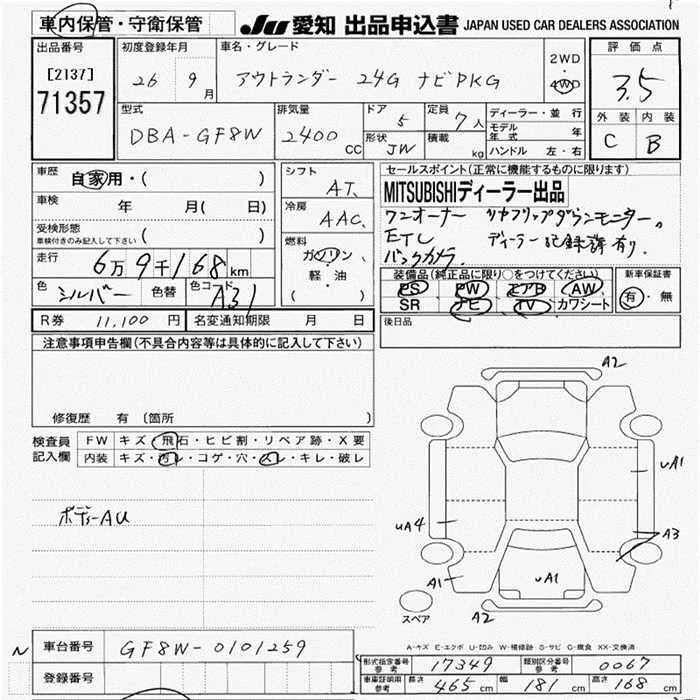 車内保管・守衛保管
JU 愛知 出品申込書 JAPAN USED CAR DEALERS ASSOCIATION
出品番号
[2137]
71357
初度登録年月
26 9月
車名・グレード
アウトランダー 24G ナビPKG
2WD
・
4WD
評価点
3.5
外装 内装
C B
型式
DBA-GF8W
排気量
2400 CC
ドア 5
形状 JW
定員 7人
積載 kg
ディーラー・並行
モデル年式 年
ハンドル 左・右
車歴
自家用・( )
車検 年 月( 日)
受検形態
車検付きのみ記入して下さい ( )
走行 6万9千168km
色 シルバー 色替 色コード A31
シフト
AT
冷房
AAC
燃料
ガソリン
軽・油
( )
セールスポイント(正常に機能するものに限ります)
MITSUBISHIディーラー出品
ワンオーナー リヤフリップダウンモニター。
ETC ディーラー記録簿有り。
バックカメラ。
装備品(純正品に限り○をつけてください)
PS PW エアB AW
SR ナビ TV カワシート
新車保証書
有・無
R券 11,100円 名変通知期限 月 日
後日品
注意事項申告欄(不具合内容等は具体的に記入して下さい)
修復歴 有 〔箇所 〕
検査員記入欄
FW キズ・飛石・ヒビ割・リペア跡・X要
内装 キズ・汚レ・コゲ・穴・スレ・キレ・破レ
ボディーAU
A2
UA1
UA4
A3
A1
UA1
A2
スペア
A-キズ E-エクボ U-凹み W-補修跡 S-サビ C-腐食 XX-交換済
N
車台番号 GF8W-0101259
登録番号
形式指定番号 参考 17349 類別区分番号 参考 0067
車庫証明用 参考 長さ 465cm 幅 181cm 高さ 168cm